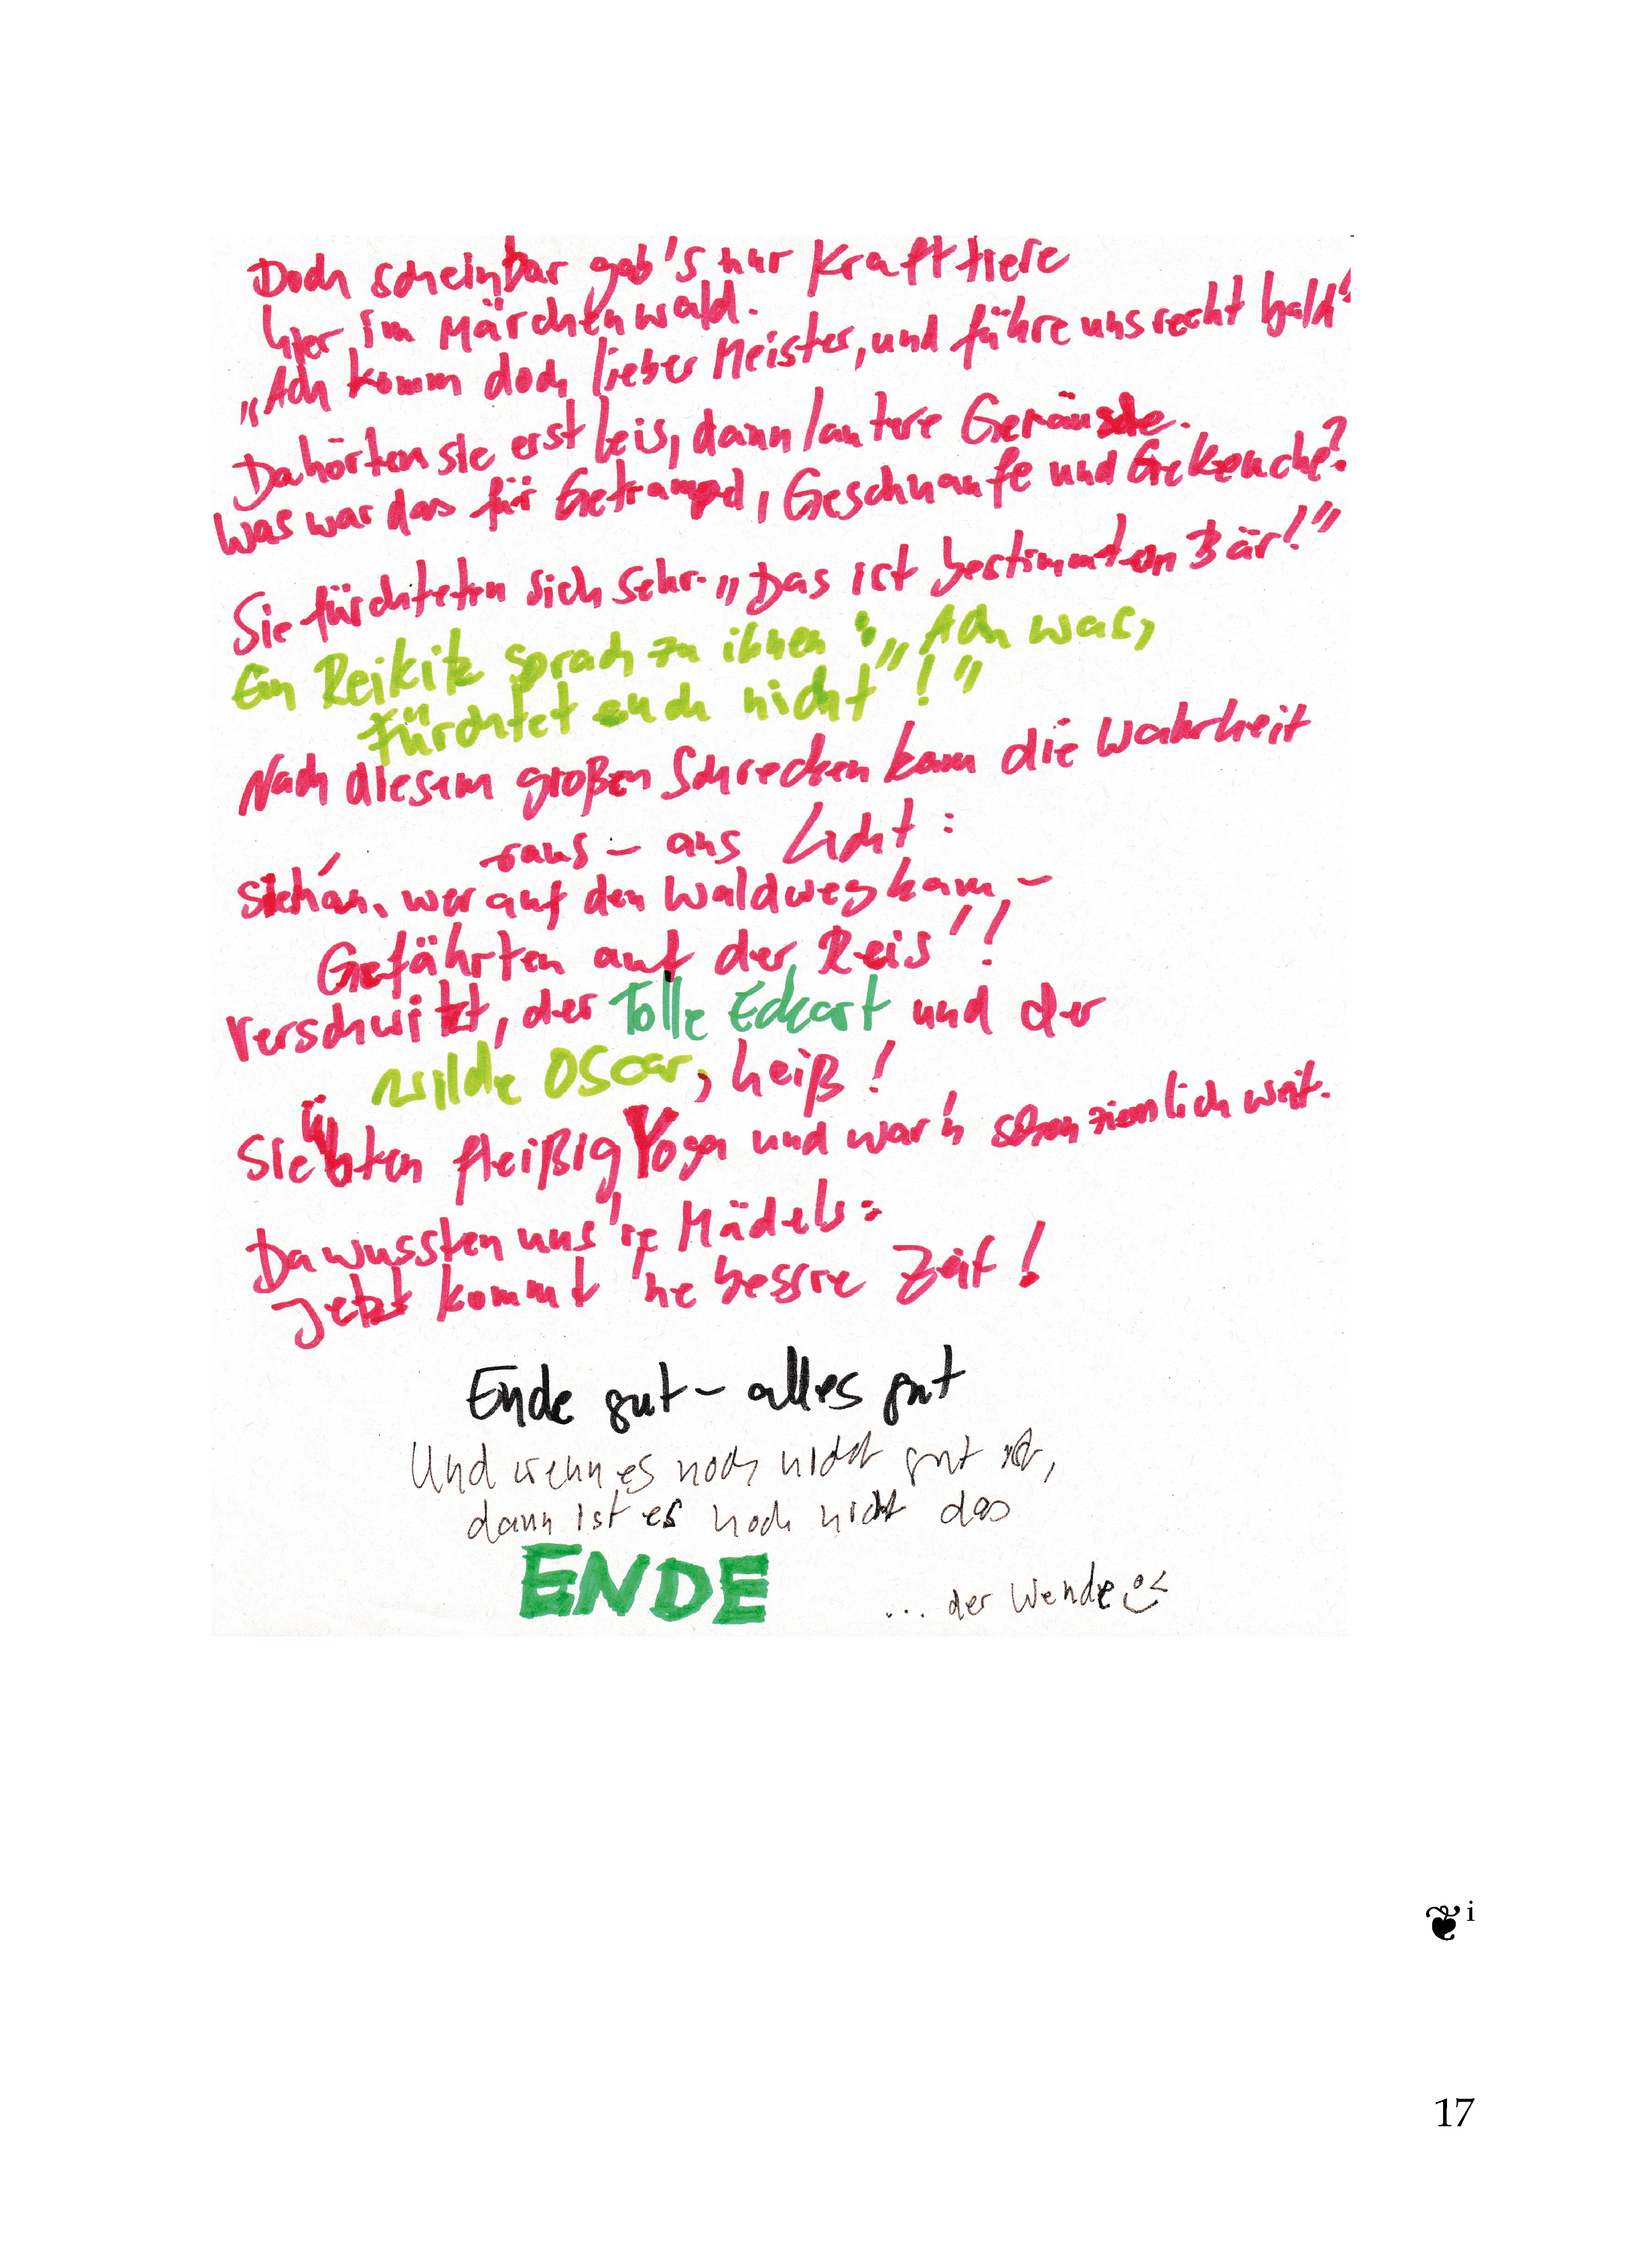 Doch scheinbar gab's nur Krafttiere
hier im Märchenwald.
„Ach komm doch lieber Meister, und führe uns recht bald"
Da hörten sie erst leis, dann lautere Geräusche.
Was war das für Getrampel, Geschnaufe und Gekeuche?
Sie fürchteten sich sehr. „Das ist bestimmt en Bär!"
Ein Reikitz sprach zu ihnen: „Ach was,
fürchtet euch nicht"!"
Nach diesem großen Schrecken kam die Wahrheit
raus – ans Licht:
Sieh an, wer auf den Waldweg kam, –
Gefährten auf der Reis'!
Verschwitzt, der Tolle Eckart und der
wilde Oscar, heiß!
Sie übten fleißig Yoga und war'n schon ziemlich weit.
Da wussten uns're Mädels:
Jetzt kommt 'ne bessre Zeit!
Ende gut – alles gut
Und wenn es noch nicht gut ist,
dann ist es noch nicht das
ENDE
... der Wende
❦ i
17